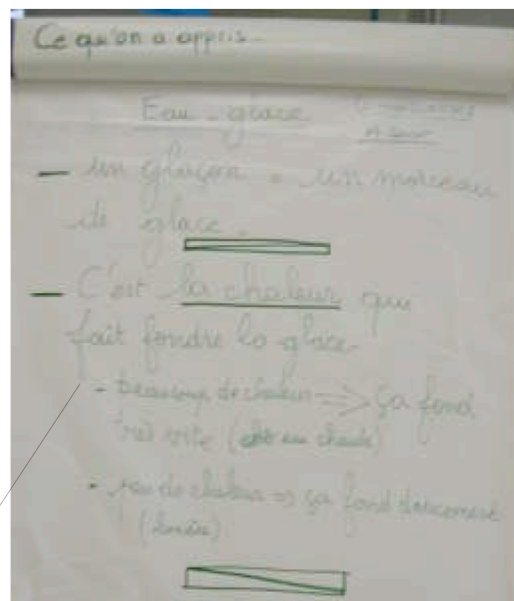 Ce qu'on a appris.
Eau - glace
— un glaçon = un morceau
de glace.
— C'est la chaleur qui
fait fondre la glace
- beaucoup de chaleur => ça fond
très vite (eau chaude)
- peu de chaleur => ça fond doucement